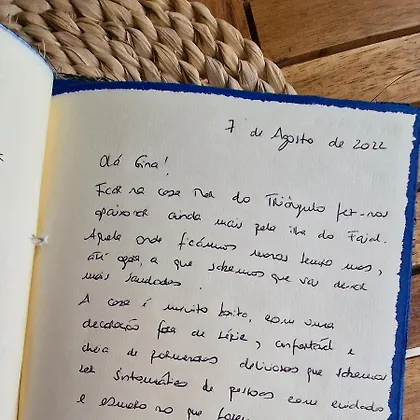 7 de Agosto de 2022
Olá Gina!
Ficar na casa do Triângulo fez-nos
apaixonar ainda mais pela ilha do Faial.
Aquela onde ficámos menos tempo mas,
até agora, a que sabemos que vai deixar
mais saudades.
A casa é muito bonita, com uma
decoração fora de série, confortável e
cheia de pormenores deliciosos que sabemos
ser sintomáticos de pessoas com cuidado
e esmero no que fazem